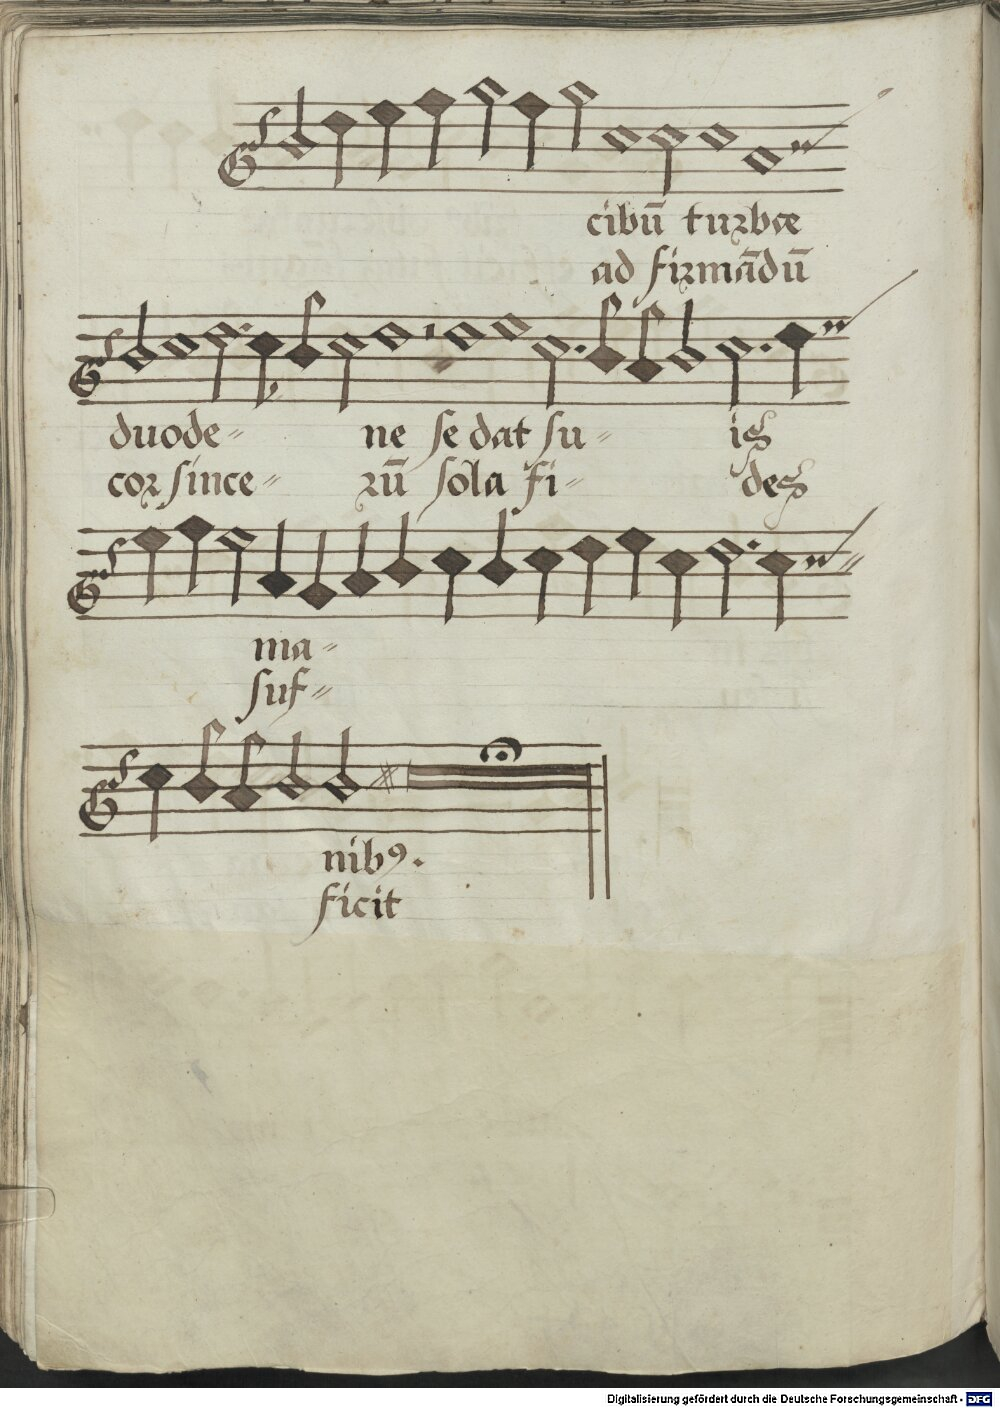 cibū turbæ
ad firmādū
duode〃 ne se dat su〃 is
cor since〃 rū sola fi〃 des
ma〃
suf〃
nibꝰ.
ficit
Digitalisierung gefördert durch die Deutsche Forschungsgemeinschaft - DFG